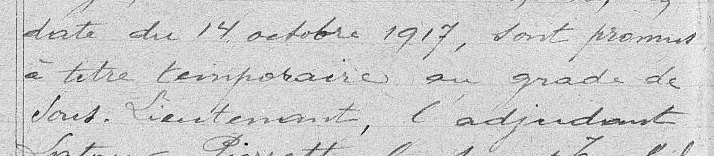 date du 14 octobre 1917, sont promus
à titre temporaire au grade de
Sous-Lieutenant, l'adjudant